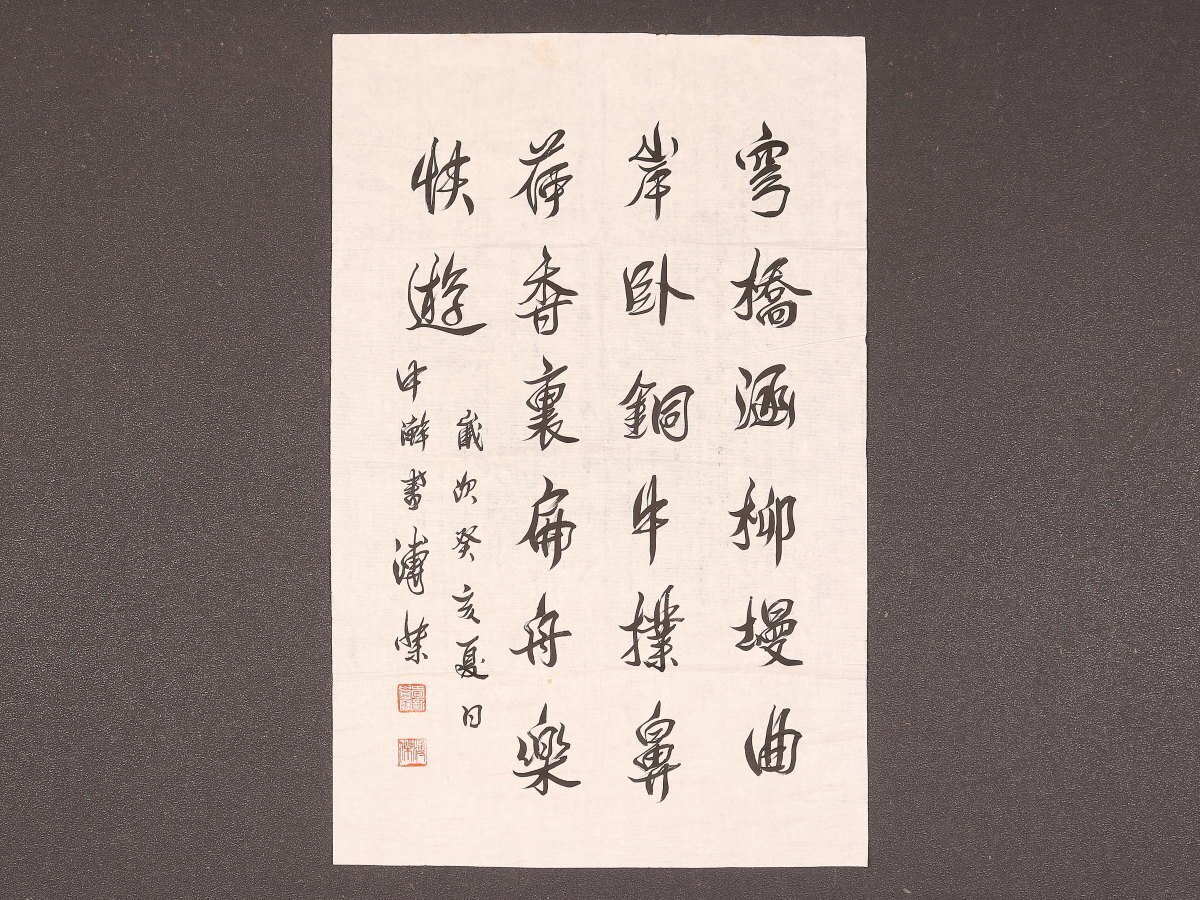 穹橋涵柳墁曲
岸臥銅牛撲鼻
荷香裏扁舟樂
快遊
歲次癸亥夏日
中澣書溥傑
溥傑